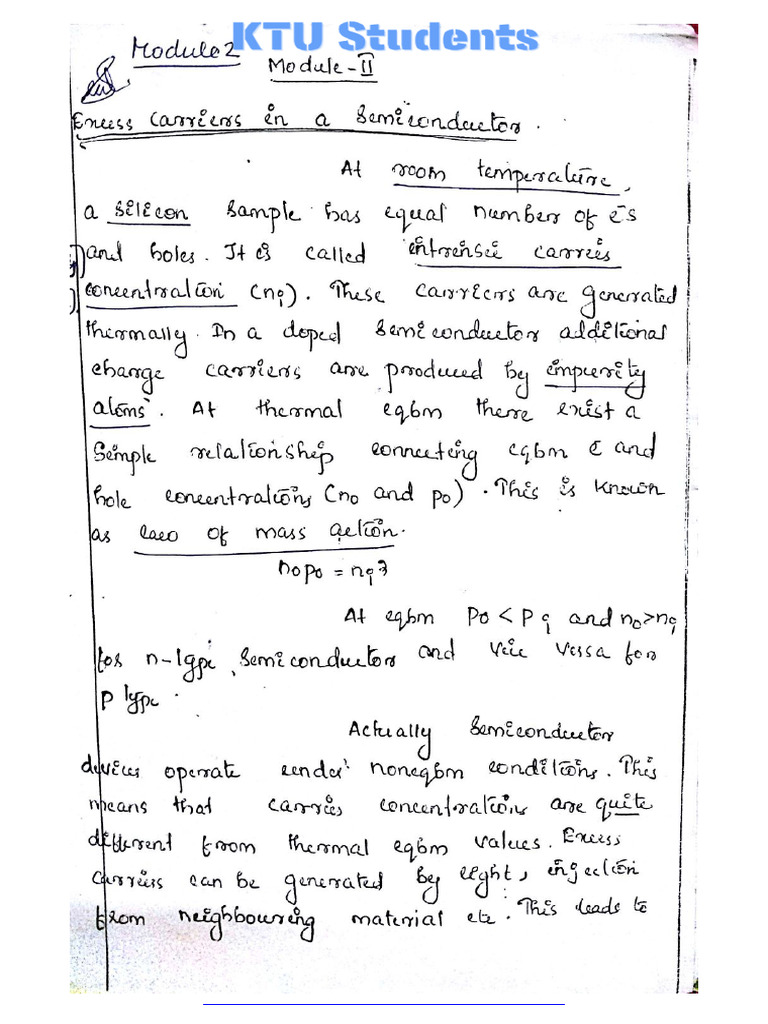 KTU Students
Module 2
Module - II
Excess carriers in a semiconductor.
At room temperature,
a silicon sample has equal number of e̅s
and holes. It is called intrinsic carrier
concentration (ni). These carriers are generated
thermally. In a doped semiconductor additional
charge carriers are produced by impurity
atoms. At thermal eqbm there exist a
simple relationship connecting eqbm e̅ and
hole concentrations (no and po). This is known
as law of mass action.
nopo = ni²
At eqbm Po < Pi and no>ni
for n-type semiconductor and vice versa for
p type.
Actually semiconductor
devices operate under noneqbm conditions. This
means that carrier concentrations are quite
different from thermal eqbm values. Excess
carriers can be generated by light, injection
from neighbouring material etc. This leads to